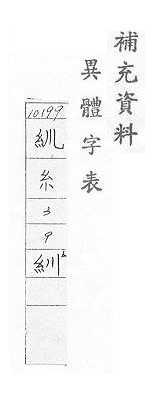 補充資料
異體字表
10199
糸
3
9
紃